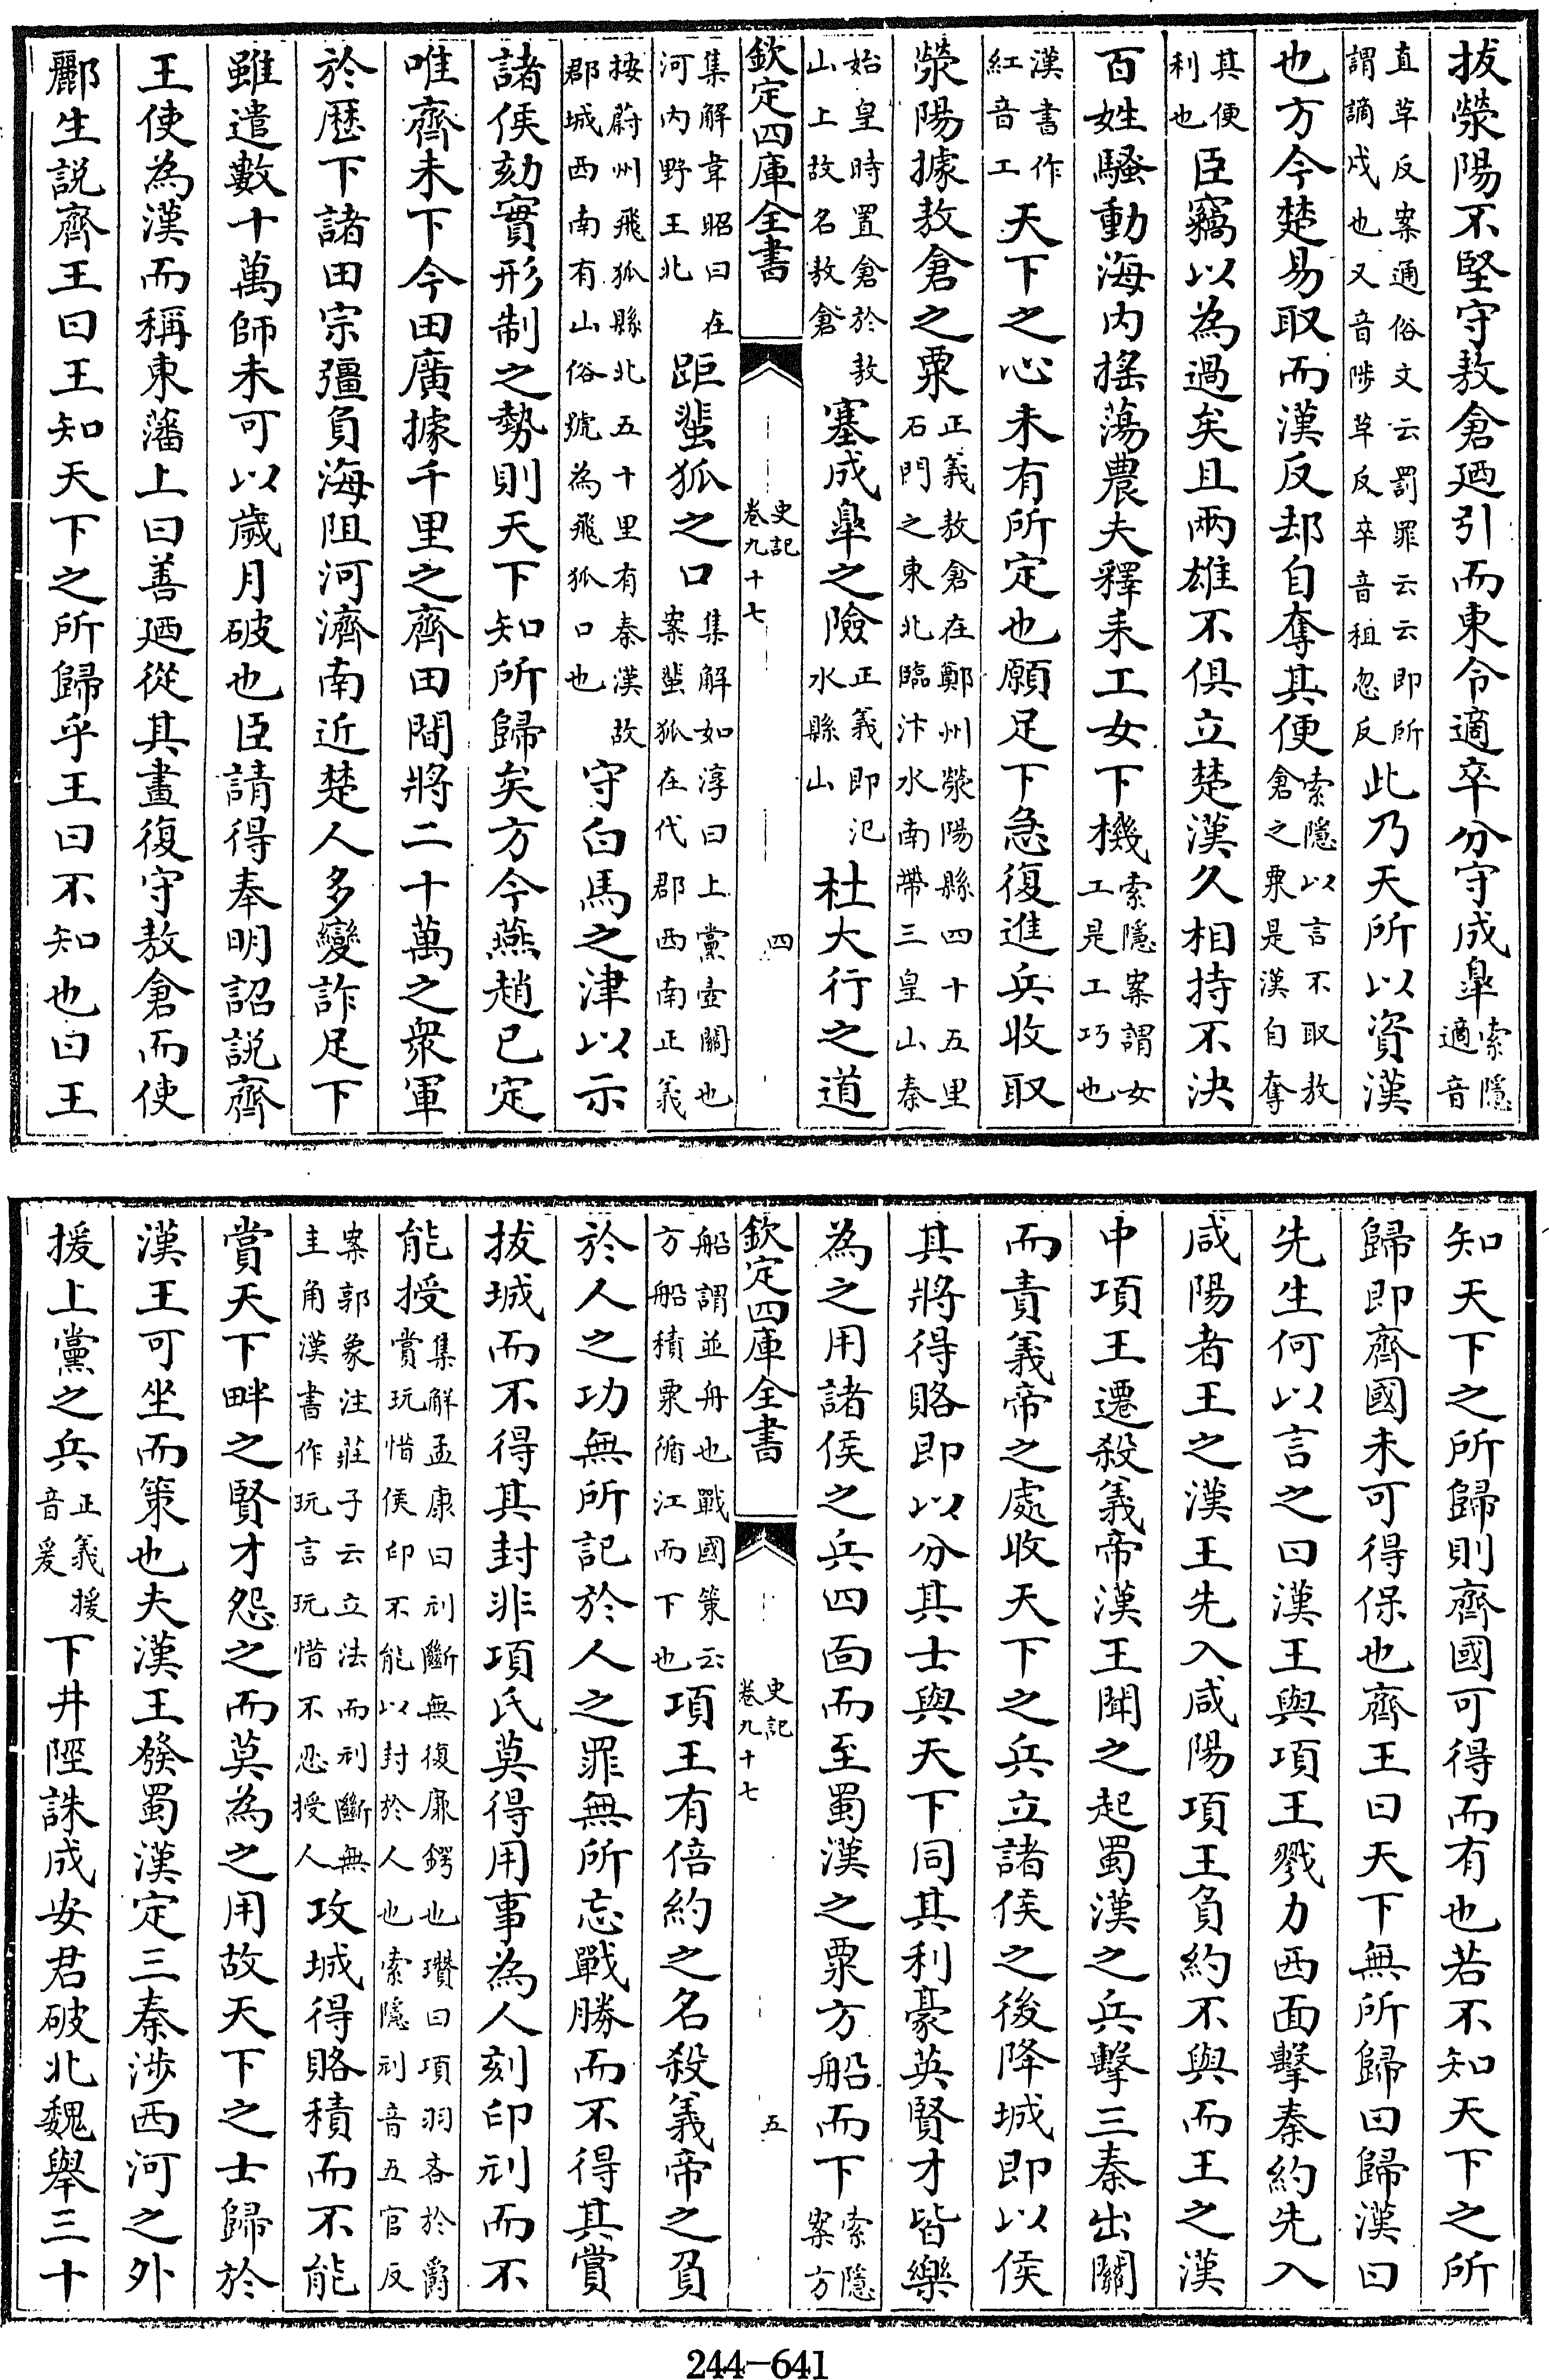 拔滎陽不堅守敖倉廼引而東令適卒分守成臯索隱適音
直革反案通俗文云罰罪云云即所謂謫戍也又音陟革反卒音租忽反此乃天所以資漢
也方今楚易取而漢反却自奪其便索隱以言不取敖倉之粟是漢自奪
其便利也臣竊以為過矣且兩雄不俱立楚漢久相持不決
百姓騷動海内搖蕩農夫釋耒工女下機索隱案謂女工是工巧也
漢書作紅音工天下之心未有所定也願足下急復進兵收取
滎陽據敖倉之粟正義敖倉在鄭州滎陽縣四十五里石門之東北臨汴水南帶三皇山秦
始皇時置倉於敖山上故名敖倉塞成臯之險正義即氾水縣山杜大行之道
欽定四庫全書 史記卷九十七 四
集解韋昭曰在河内野王北距蜚狐之口集解如淳曰上黨壺關也案蜚狐在代郡西南正義
按蔚州飛狐縣北五十里有秦漢故郡城西南有山俗號為飛狐口也守白馬之津以示
諸侯効實形制之勢則天下知所歸矣方今燕趙已定
唯齊未下今田廣據千里之齊田間將二十萬之衆軍
於歷下諸田宗彊負海阻河濟南近楚人多變詐足下
雖遣數十萬師未可以歲月破也臣請得奉明詔説齊
王使為漢而稱東藩上曰善廼從其畫復守敖倉而使
酈生説齊王曰王知天下之所歸乎王曰不知也曰王
知天下之所歸則齊國可得而有也若不知天下之所
歸即齊國未可得保也齊王曰天下無所歸曰歸漢曰
先生何以言之曰漢王與項王戮力西面擊秦約先入
咸陽者王之漢王先入咸陽項王負約不與而王之漢
中項王遷殺義帝漢王聞之起蜀漢之兵擊三秦出關
而責義帝之處收天下之兵立諸侯之後降城即以侯
其將得賂即以分其士與天下同其利豪英賢才皆樂
為之用諸侯之兵四面而至蜀漢之粟方船而下索隱案方
欽定四庫全書 史記卷九十七 五
船謂並舟也戰國策云方船積粟循江而下也項王有倍約之名殺義帝之負
於人之功無所記於人之罪無所忘戰勝而不得其賞
拔城而不得其封非項氏莫得用事為人刻印刓而不
能授集解孟康曰刓斷無復廉鍔也瓚曰項羽吝於爵賞玩惜侯印不能以封於人也索隱刓音五官反
案郭象注莊子云立法而刓斷無圭角漢書作玩言玩惜不忍授人攻城得賂積而不能
賞天下畔之賢才怨之而莫為之用故天下之士歸於
漢王可坐而策也夫漢王發蜀漢定三秦涉西河之外
援上黨之兵正義援音爰下井陘誅成安君破北魏舉三十
244-641